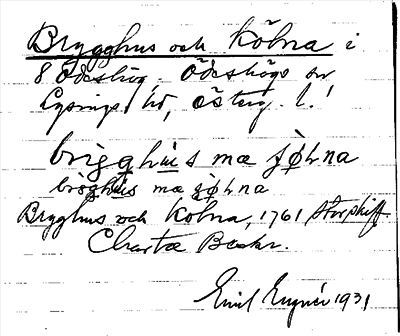 Brygghus och Kölna i
8 Ödeshög. Ödeshögs sn
Lysings hd, Österg. l.
brigghus mœ ʒøLna
brögghus mœ ʒøLna
Brygghus och Kölna, 1761 Storskift
Charta Beskr.
Emil Eugnér 1931